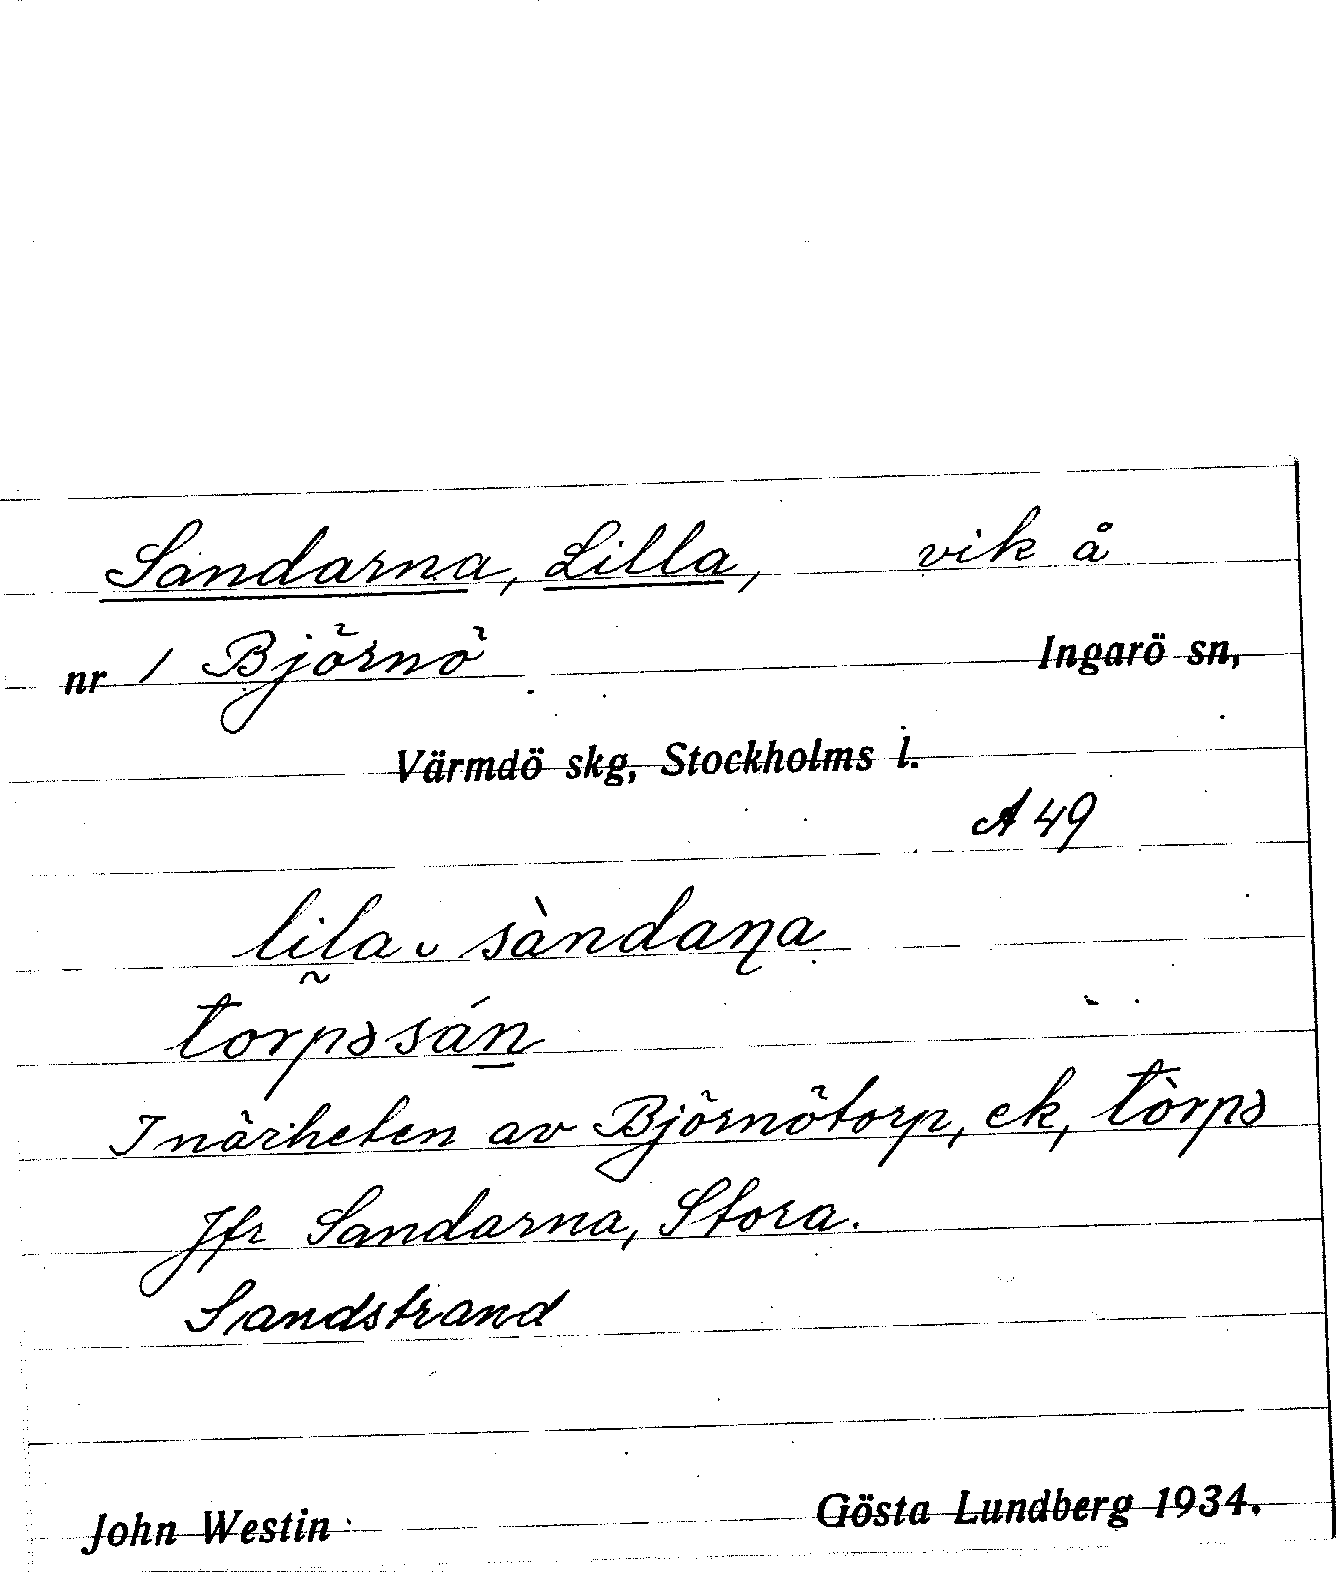 Sandarna, Lilla, vik å
nr 1 Björnö Ingarö sn,
Värmdö skg, Stockholms l.
A 49
lila ᴗ sàndaɳa
torpəsán
I närheten av Björnötorp, ek, tòrpə
Jfr Sandarna, Stora.
Sandstrand
John Westin Gösta Lundberg 1934.